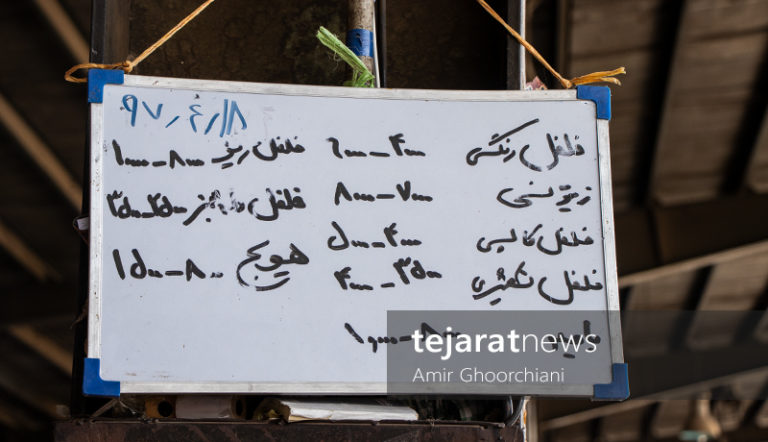 ۹۷٫۴٫۱۸
فلفل رنگی ۴۰۰۰-۶۰۰۰
زیتونی ۷۰۰۰-۸۰۰۰
فلفل ۴۰۰۰-۵۰۰۰
فلفل ۳۵۰۰-۴۰۰۰
۸۰۰۰-۱۰۰۰۰
فلفل ریز ۸۰۰۰-۱۰۰۰۰
فلفل ۲۵۰۰-۳۵۰۰
هویج ۸۰۰-۱۵۰۰
tejaratnews
Amir Ghoorchiani